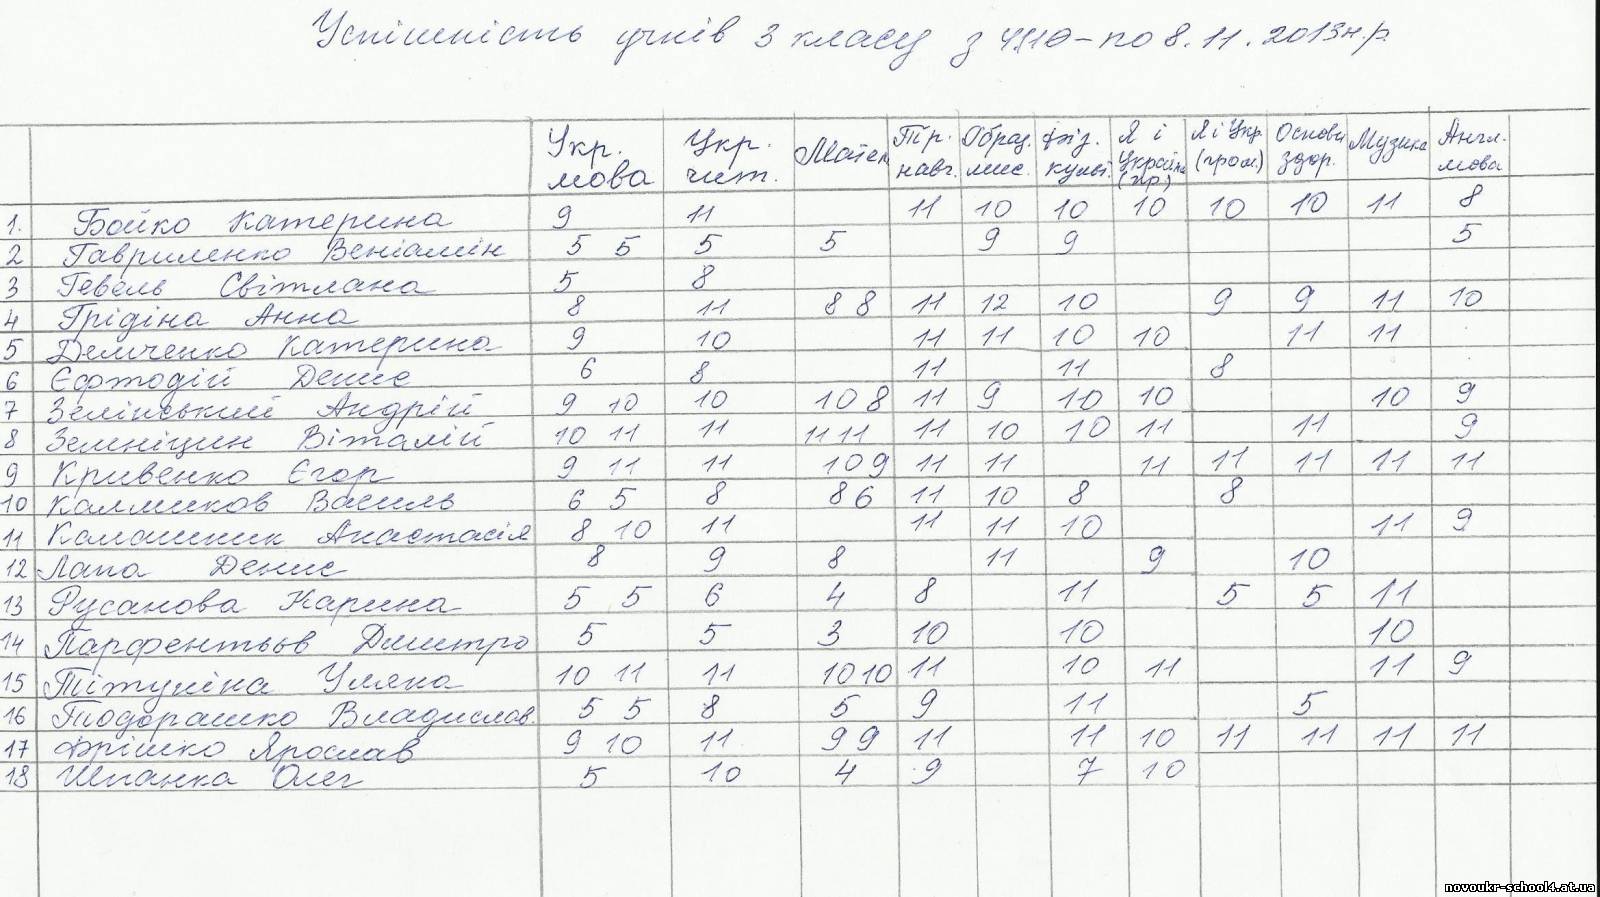 Успішність учнів 3 класу з 4.11 - по 8.11.2013н.р.
Укр. мова Укр. чит. Матем Тр. навч. Образ. мис. Фіз. культ. Я і Україна (пр) Я і Укр. (гром.) Основи здор. Музика Англ. мова
1. Бойко Катерина 9 11 11 10 10 10 10 10 11 8
2 Гавриленко Веніамін 5 5 5 5 9 9 5
3 Гевель Світлана 5 8
4 Грідіна Анна 8 11 8 8 11 12 10 9 9 11 10
5 Демченко Катерина 9 10 11 11 10 10 11 11
6 Єфтодій Денис 6 8 11 11 8
7 Зелінський Андрій 9 10 10 10 8 11 9 10 10 10 9
8 Земніцин Віталій 10 11 11 11 11 11 10 10 11 11 9
9 Кривенко Єгор 9 11 11 10 9 11 11 11 11 11 11 11
10 Калмиков Василь 6 5 8 8 6 11 10 8 8
11 Камашник Анастасія 8 10 11 11 11 10 11 9
12 Лапа Денис 8 9 8 11 9 10
13 Русанова Карина 5 5 6 4 8 11 5 5 11
14 Парфентьєв Дмитро 5 5 3 10 10 10
15 Тітуніна Уляна 10 11 11 10 10 11 10 11 11 9
16 Тодорашко Владислав. 5 5 8 5 9 11 5
17 Фрішко Ярослав 9 10 11 9 9 11 11 10 11 11 11 11
18 Шпанка Олег 5 10 4 9 7 10
novoukr-school4.at.ua